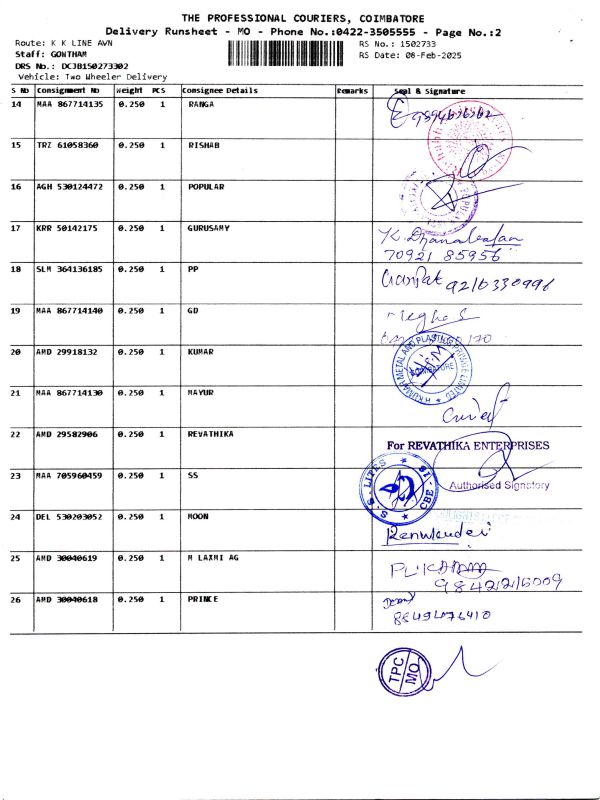 THE PROFESSIONAL COURIERS, COIMBATORE
Delivery Runsheet - MO - Phone No.:0422-3505555 - Page No.:2
Route: K K LINE AVN
RS No.: 1502733
Staff: GOWTHAM
RS Date: 08-Feb-2025
DRS No.: DCJB150273302
Vehicle: Two Wheeler Delivery
S No Consignment No Weight PCS Consignee Details Remarks Seal & Signature
14 MAA 867714135 0.250 1 RANGA
15 TRZ 61058360 0.250 1 RISHAB
16 AGH 530124472 0.250 1 POPULAR
17 KRR 50142175 0.250 1 GURUSAMY K. Dhanabalan
70921 85956
18 SLM 364136185 0.250 1 PP Ganpat 9216330996
19 MAA 867714140 0.250 1 GD Megha S
20 AMD 29918132 0.250 1 KUMAR
METAL AND PLASTIC PRIVATE LIMITED
COIMBATORE
21 MAA 867714130 0.250 1 MAYUR
22 AMD 29582906 0.250 1 REVATHIKA For REVATHIKA ENTERPRISES
Authorised Signatory
23 MAA 705960459 0.250 1 SS
S.S. LITES * CBE
24 DEL 530203052 0.250 1 MOON
25 AMD 30040619 0.250 1 M LAXMI AG
26 AMD 30040618 0.250 1 PRINCE
TPC
MO